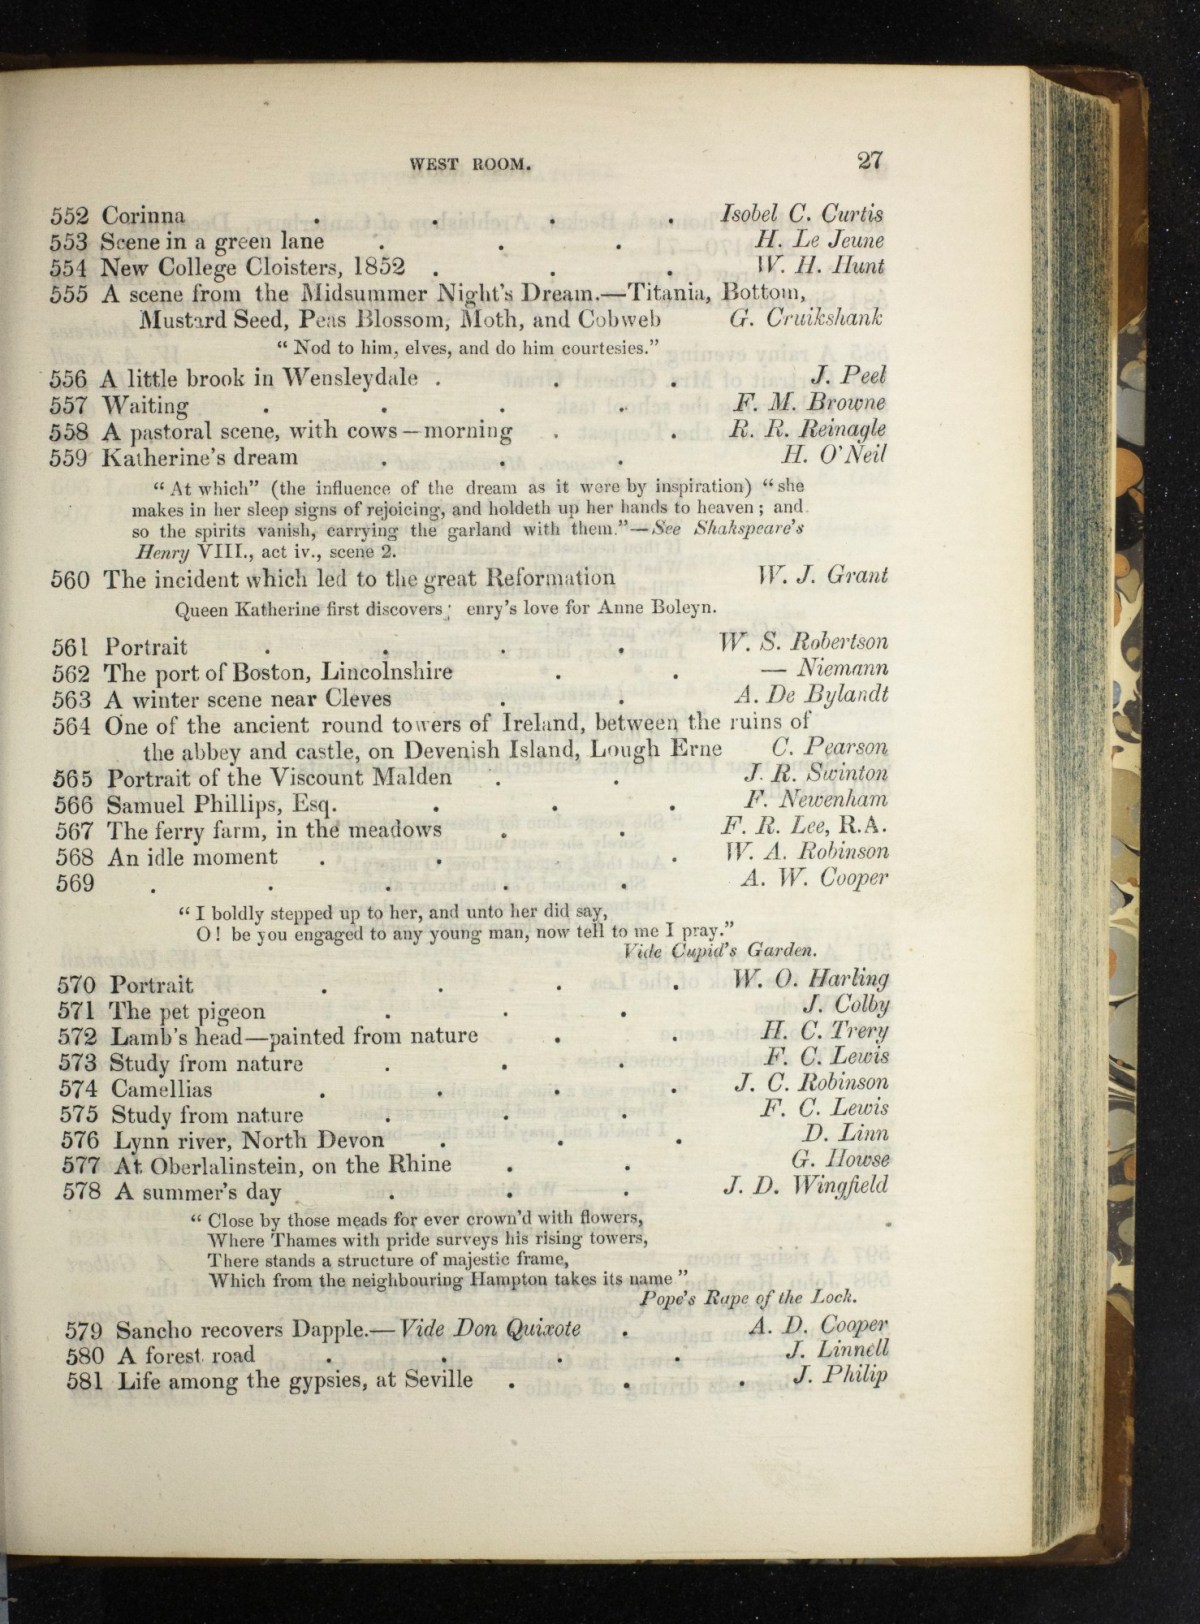 WEST ROOM. 27
552 Corinna . . . . Isobel C. Curtis
553 Scene in a green lane . . . H. Le Jeune
554 New College Cloisters, 1852 . . . W. H. Hunt
555 A scene from the Midsummer Night's Dream.—Titania, Bottom,
Mustard Seed, Peas Blossom, Moth, and Cobweb G. Cruikshank
“ Nod to him, elves, and do him courtesies.”
556 A little brook in Wensleydale . . . J. Peel
557 Waiting . . . . F. M. Browne
558 A pastoral scene, with cows—morning . . R. R. Reinagle
559 Katherine's dream . . . H. O'Neil
“ At which” (the influence of the dream as it were by inspiration) “ she
makes in her sleep signs of rejoicing, and holdeth up her hands to heaven ; and
so the spirits vanish, carrying the garland with them.”—See Shakspeare's
Henry VIII., act iv., scene 2.
560 The incident which led to the great Reformation W. J. Grant
Queen Katherine first discovers enry's love for Anne Boleyn.
561 Portrait . . . . W. S. Robertson
562 The port of Boston, Lincolnshire . . — Niemann
563 A winter scene near Cleves . . A. De Bylandt
564 One of the ancient round towers of Ireland, between the ruins of
the abbey and castle, on Devenish Island, Lough Erne C. Pearson
565 Portrait of the Viscount Malden . . J. R. Swinton
566 Samuel Phillips, Esq. . . . F. Newenham
567 The ferry farm, in the meadows . . F. R. Lee, R.A.
568 An idle moment . . . . W. A. Robinson
569 . . . . . A. W. Cooper
“ I boldly stepped up to her, and unto her did say,
O ! be you engaged to any young man, now tell to me I pray.”
Vide Cupid's Garden.
570 Portrait . . . . W. O. Harling
571 The pet pigeon . . . J. Colby
572 Lamb's head—painted from nature . . H. C. Trery
573 Study from nature . . . F. C. Lewis
574 Camellias . . . . J. C. Robinson
575 Study from nature . . . F. C. Lewis
576 Lynn river, North Devon . . . D. Linn
577 At Oberlalinstein, on the Rhine . . G. Howse
578 A summer's day . . . J. D. Wingfield
“ Close by those meads for ever crown'd with flowers,
Where Thames with pride surveys his rising towers,
There stands a structure of majestic frame,
Which from the neighbouring Hampton takes its name ”
Pope's Rape of the Lock.
579 Sancho recovers Dapple.—Vide Don Quixote . A. D. Cooper
580 A forest road . . . . J. Linnell
581 Life among the gypsies, at Seville . . . J. Philip